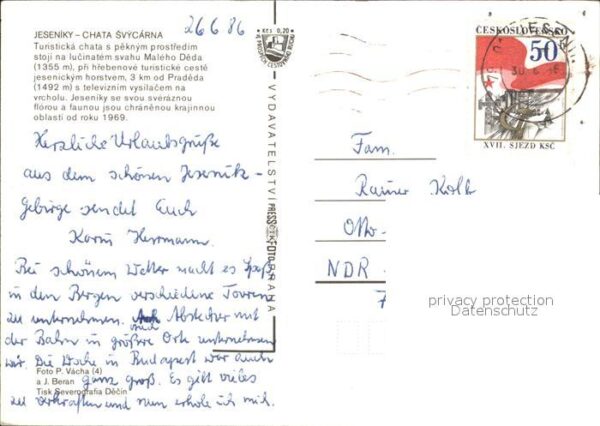 26 6 86
JESENÍKY – CHATA ŠVÝCÁRNA
Turistická chata s pěkným prostředím
stojí na lučinatém svahu Malého Děda
(1355 m), při hřebenové turistické cestě
jesenickým horstvem, 3 km od Praděda
(1492 m) s televizním vysílačem na
vrcholu. Jeseníky se svou svéráznou
flórou a faunou jsou chráněnou krajinnou
oblastí od roku 1969.
Herzliche Urlaubsgrüße
aus dem schönen Jesenik-
gebirge sendet Euch
Karin Herrmann.
Bei schönem Wetter macht es Spaß
in den Bergen verschiedene Touren
zu unternehmen. Abstecher mit
der Bahn in größere Orte unternehmen
wir. Die Woche in Budapest war auch
ganz groß. Es gibt vieles
zu verkraften und nun erhole ich mich.
Foto P. Vácha (4)
a J. Beran
Tisk Severografia Děčín
Kčs 0,20
VYDAVATELSTVÍ PRESSFOTO PRAHA
ČESKOSLOVENSKO
50
XVII. SJEZD KSČ
Fam.
Rainer Kolb
Otto-
NDR
7
privacy protection
Datenschutz